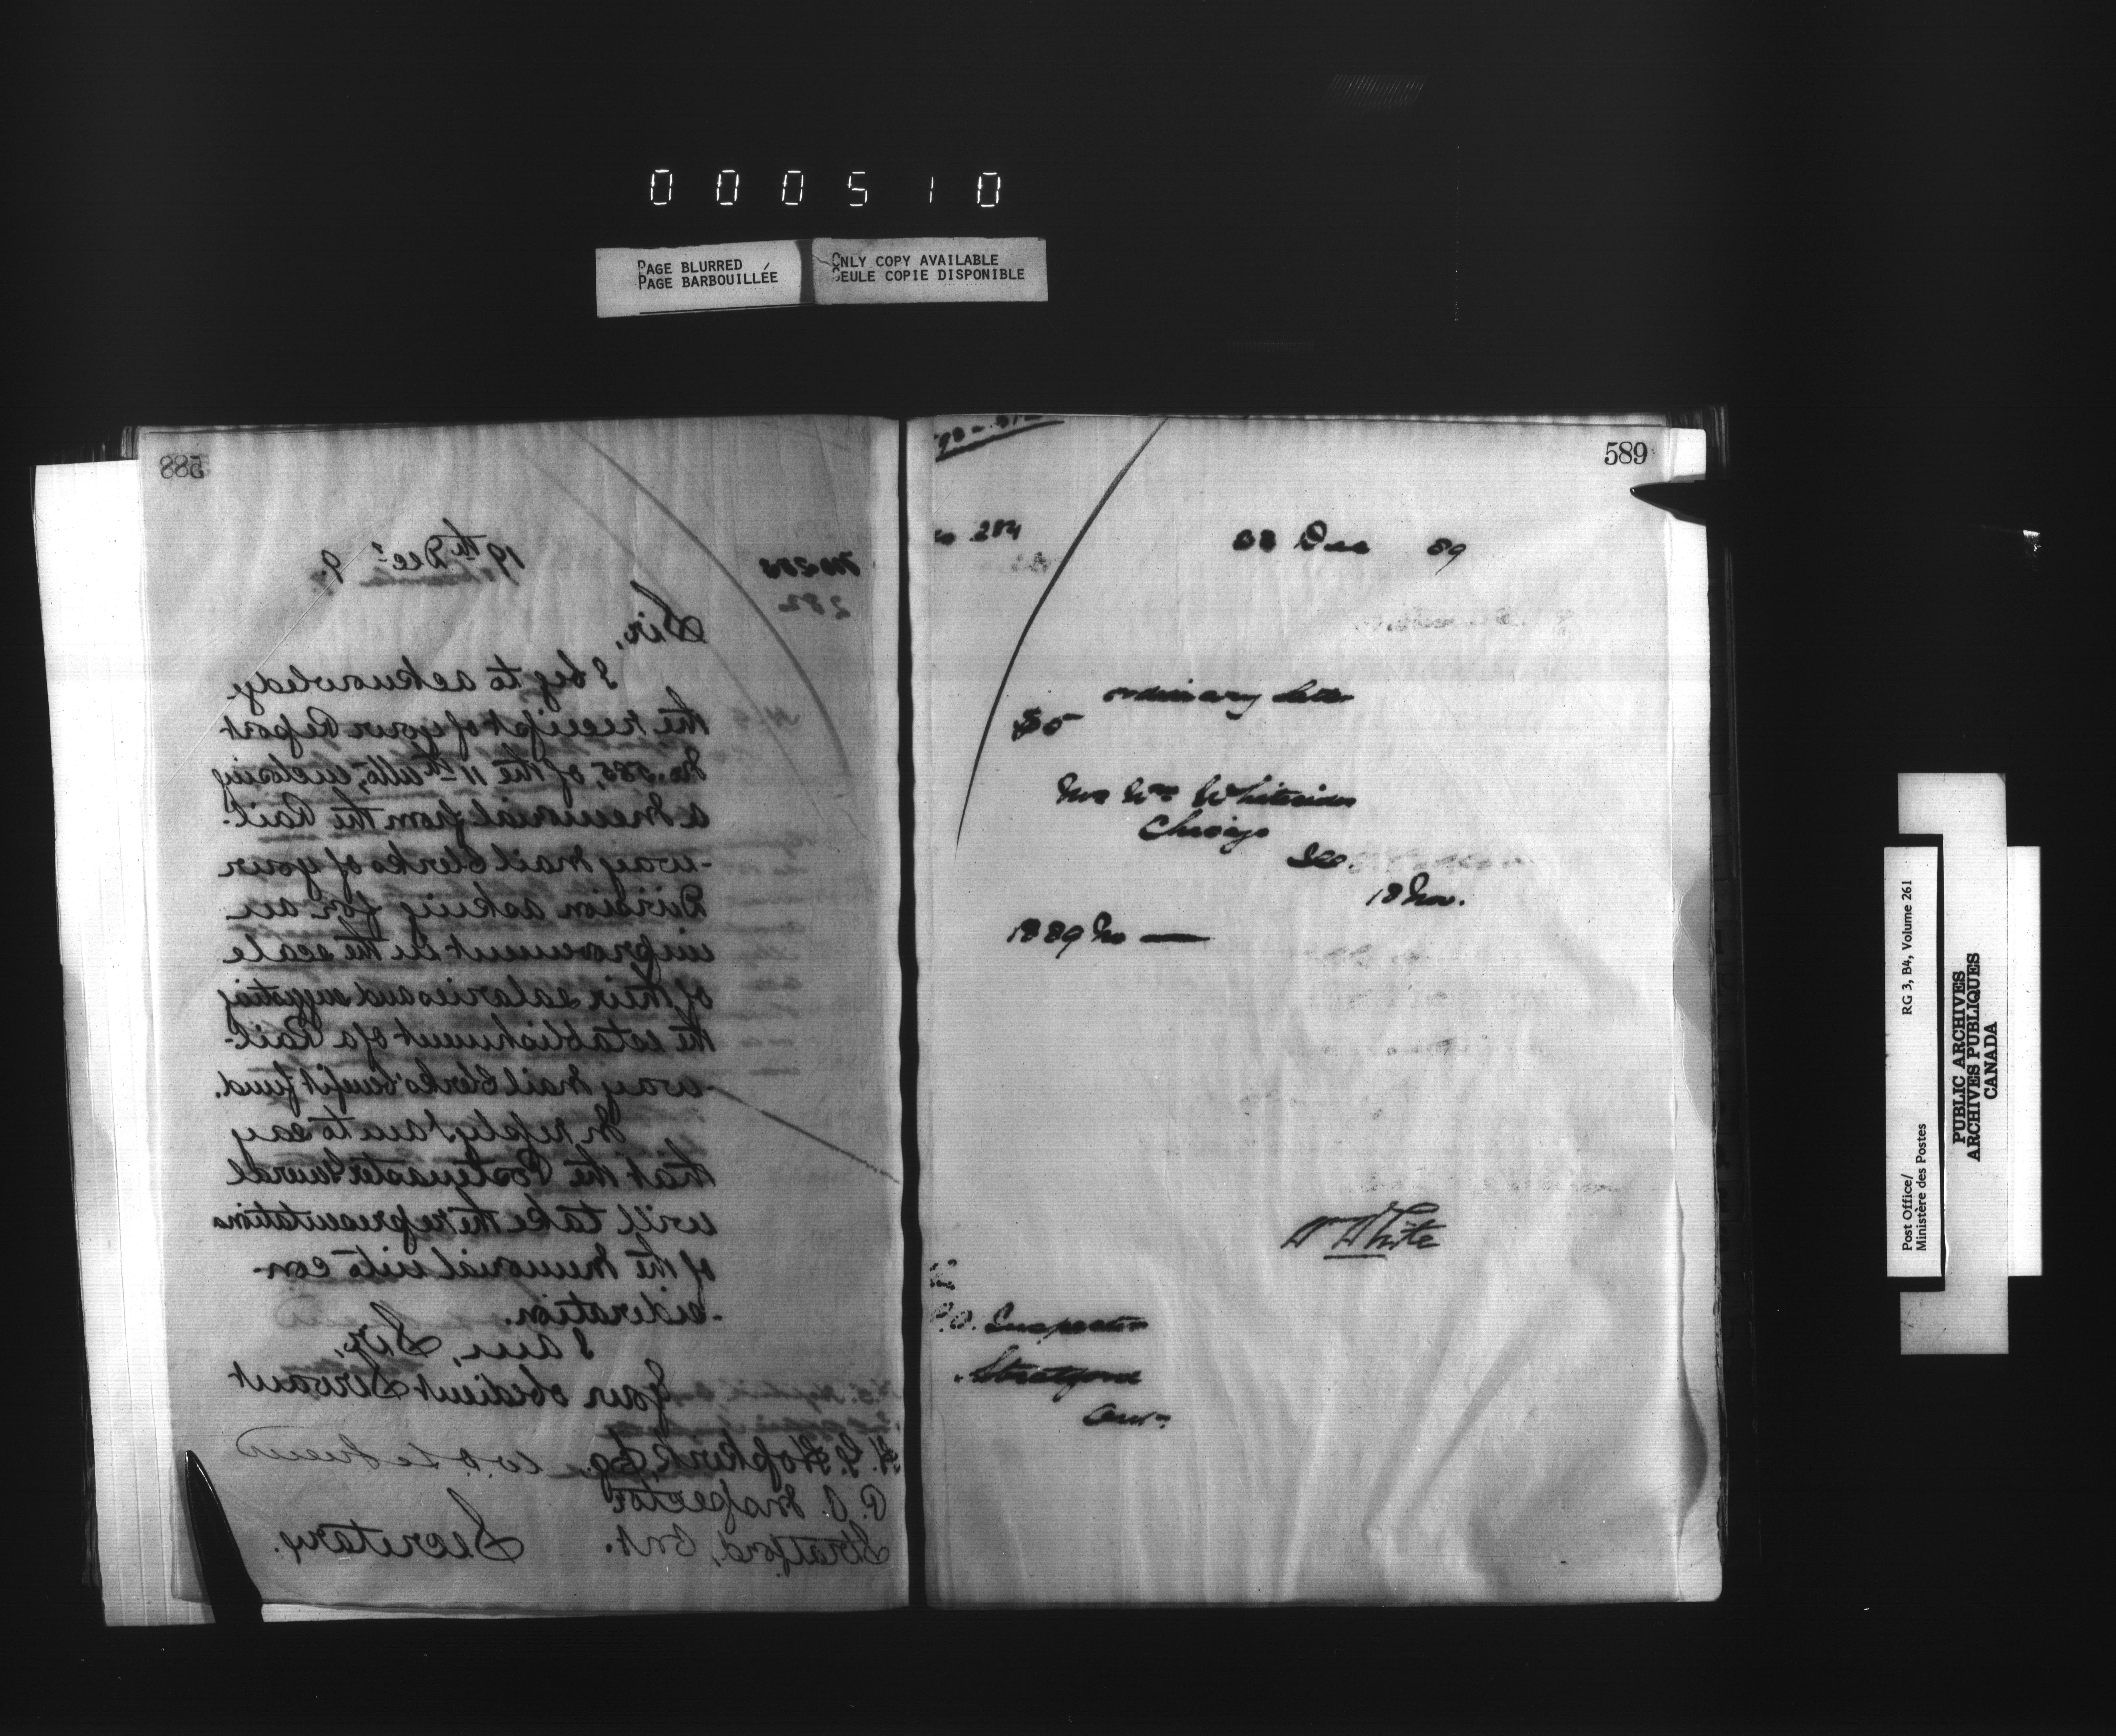 000510
PAGE BLURRED
PAGE BARBOUILLÉE
ONLY COPY AVAILABLE
SEULE COPIE DISPONIBLE
588
19th Decr 9
282
Sir,
I beg to acknowledge
the receipt of your Report
No. 585, of the 11th ulto, enclosing
a memorial from the Rail-
-way Mail Clerks of your
Division asking for an
improvement in the scale
of their salaries and suggesting
the establishment of a Rail-
-way Mail Clerks' benefit fund.
In reply I am to say
that the Postmaster General
will take the representations
of the Memorial into con-
-sideration.
I am, Sir,
Your obedient Servant
H. G. Hopkirk, Esq.
P. O. Inspector
Stratford, Ont.
Secretary.
589
284
Dec 89
ordinary letter
$5
Mrs Wm Whitesides
Chicago
Ill
18 Nov.
1889 No —
W White
P.O. Inspector
Stratford
Ont.
Post Office/
Ministère des Postes
RG 3, B4, Volume 261
PUBLIC ARCHIVES
ARCHIVES PUBLIQUES
CANADA